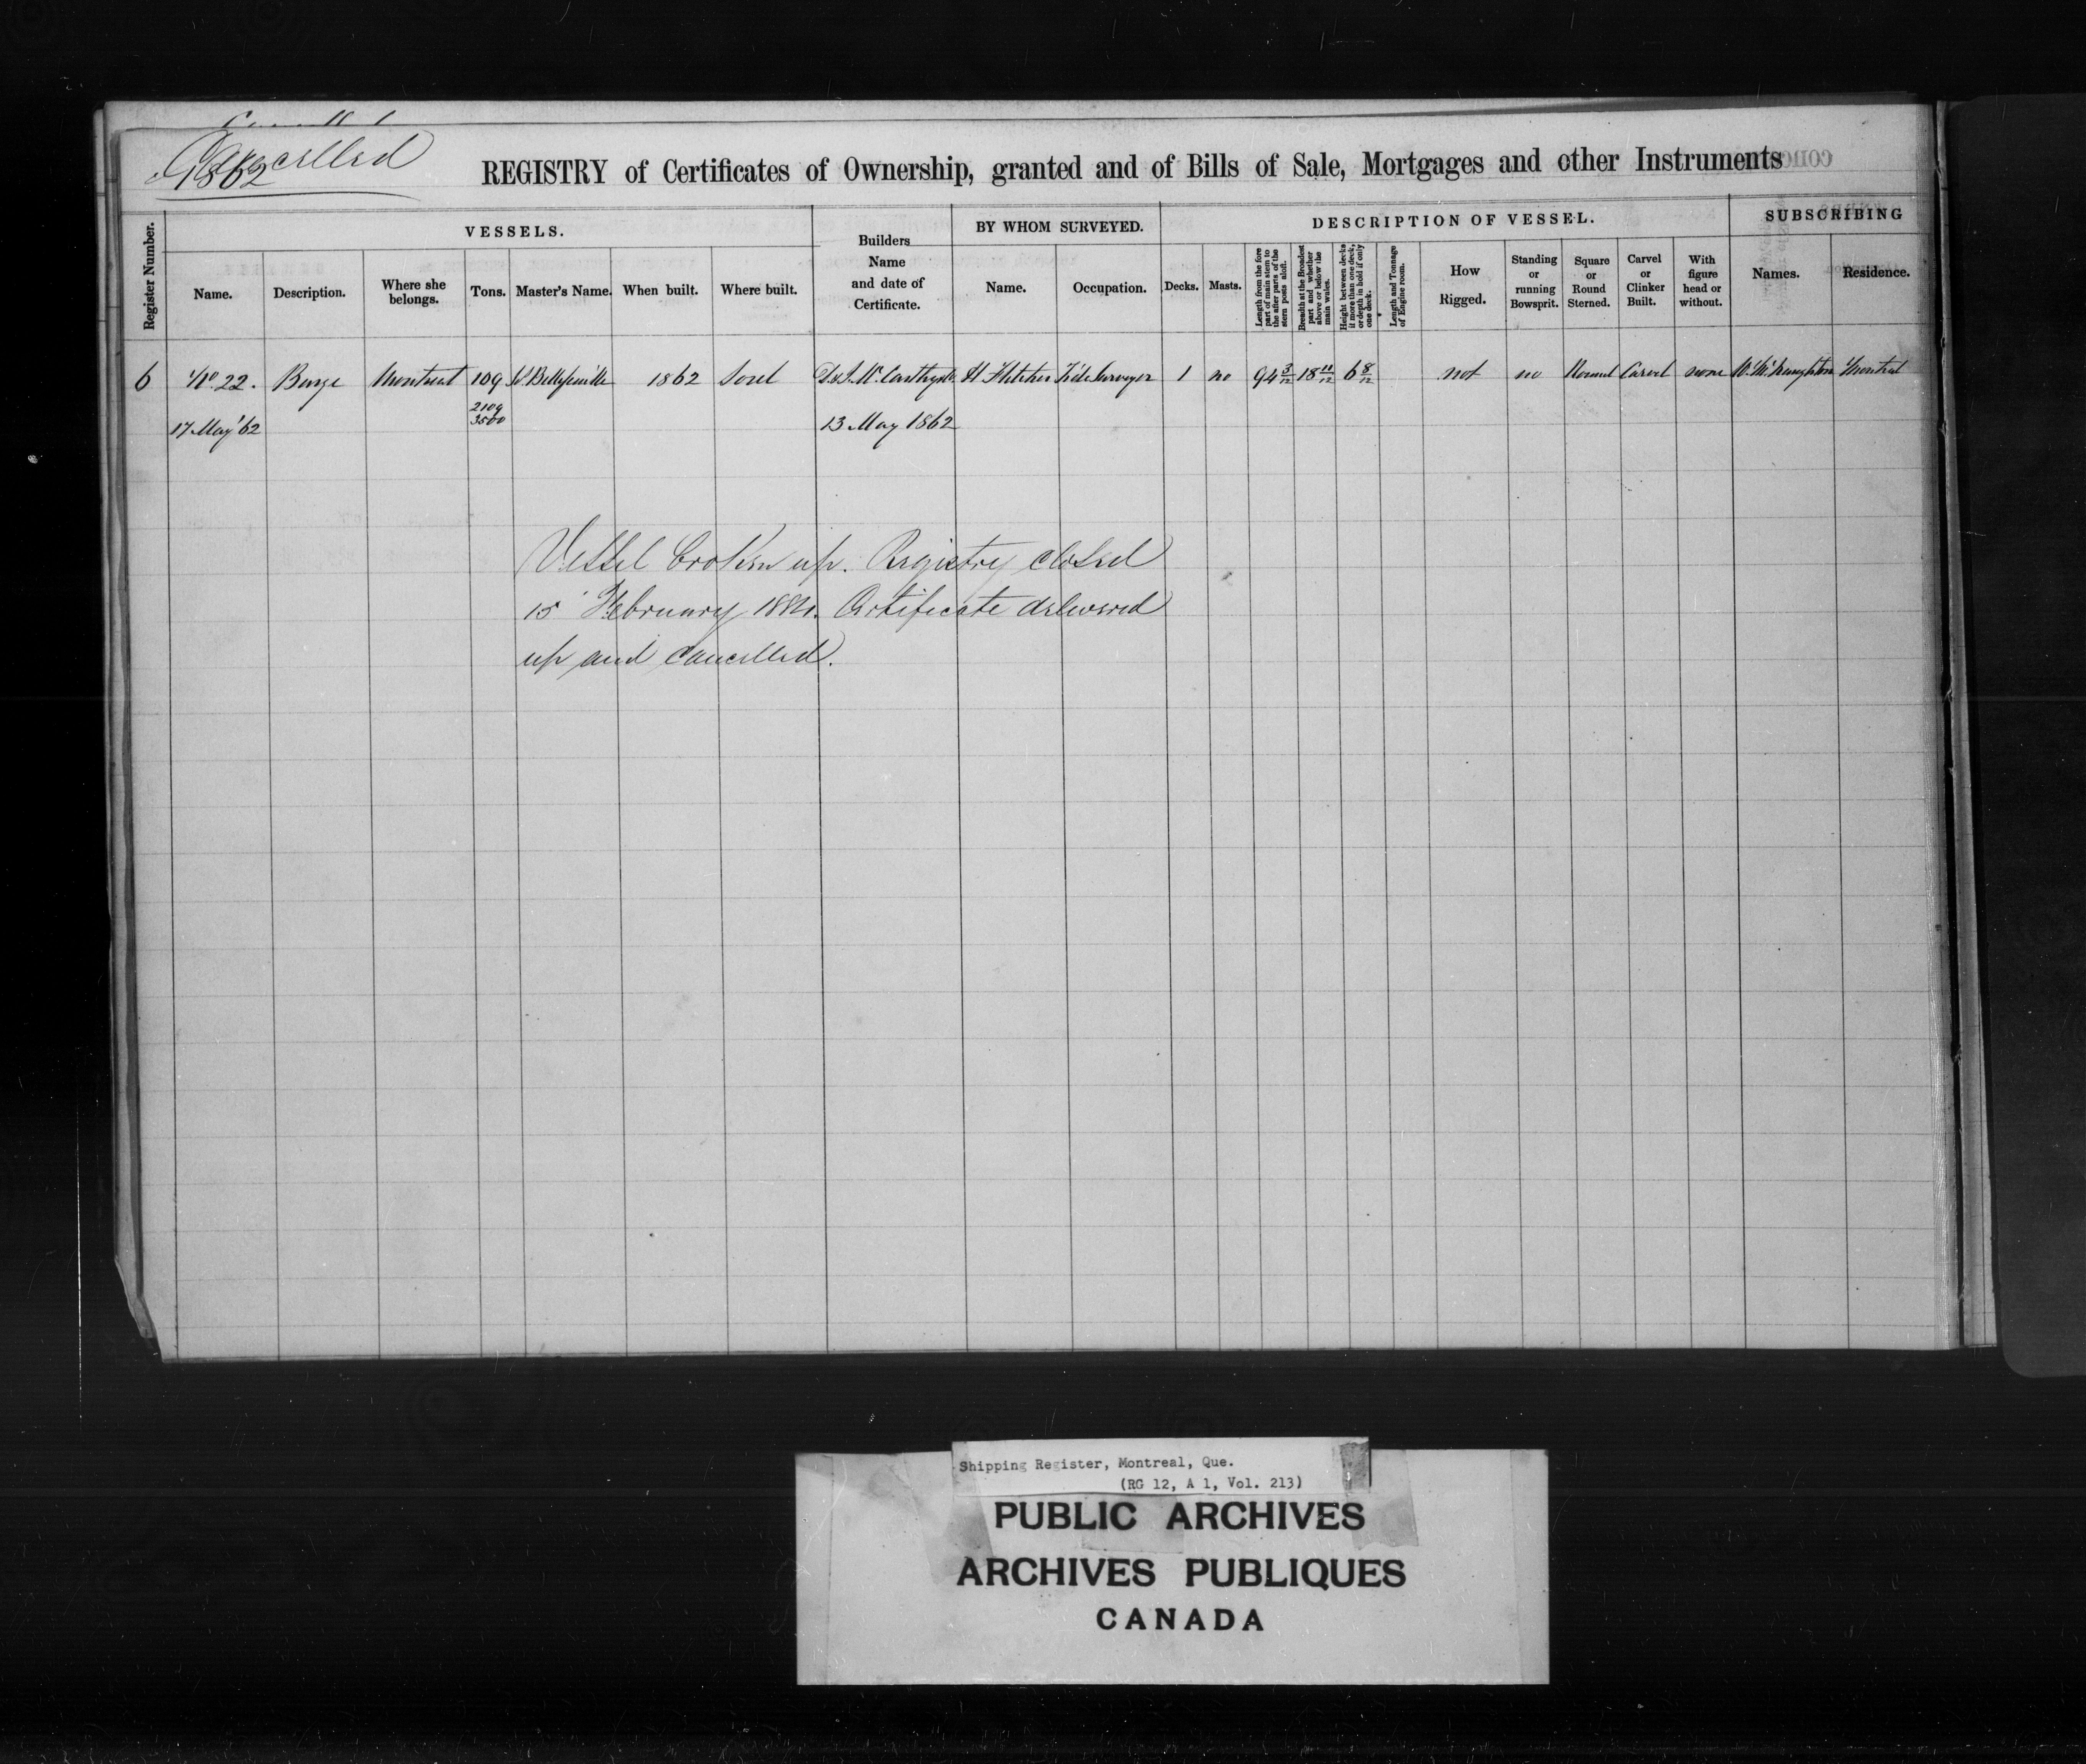 Cancelled
1862
REGISTRY of Certificates of Ownership, granted and of Bills of Sale, Mortgages and other Instruments
Register Number.
VESSELS.
Name.
Description.
Where she belongs.
Tons.
Master's Name.
When built.
Where built.
Builders Name and date of Certificate.
BY WHOM SURVEYED.
Name.
Occupation.
DESCRIPTION OF VESSEL.
Decks.
Masts.
Length from the fore part of main stem to the after parts of the stern posts aloft.
Breadth at the Broadest part and whether above or below the main wales.
Height between decks if more than one deck, or depth in hold if only one deck.
Length and Tonnage of Engine room.
How Rigged.
Standing or running Bowsprit.
Square or Round Sterned.
Carvel or Clinker Built.
With figure head or without.
SUBSCRIBING
Names.
Residence.
6 No. 22. Barge Montreal 109 1862 Sorel D & J McCarthy H Fletcher Tide Surveyor 1 no 94 3/12 18 11/12 6 8/12 not no Round Carvel none W. McNaughton Montreal
2109
3500
17 May '62 13 May 1862
Vessel broken up. Registry closed
15 February 1884. Certificate delivered
up and cancelled.
Shipping Register, Montreal, Que.
(RG 12, A 1, Vol. 213)
PUBLIC ARCHIVES
ARCHIVES PUBLIQUES
CANADA